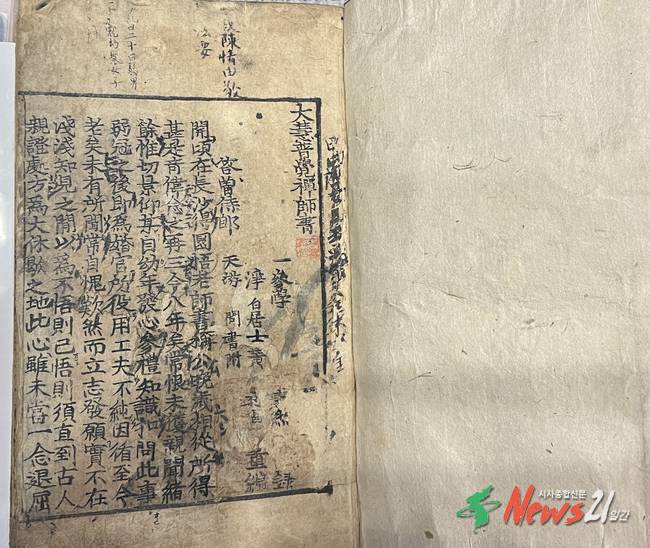 大慧普覺禪師書
參學 慧然 錄
居士 黃 重編
答曾侍郎 天游 問書附
開頃在長沙得圓悟老師書稱公晚歲相從所得
甚是奇偉念之再三今八年矣常恨未獲親聞緒
餘惟切景仰某自幼年發心參禮知識扣問此事
弱冠之後即為婚宦所役用工夫不純因循至今
老矣未有所聞常自愧歎然而立志發願實不在
淺淺知見之間以為不悟則已悟則須直到古人
親證處方為大休歇之地此心雖未嘗一念退屈
시사종합신문
News21
일간